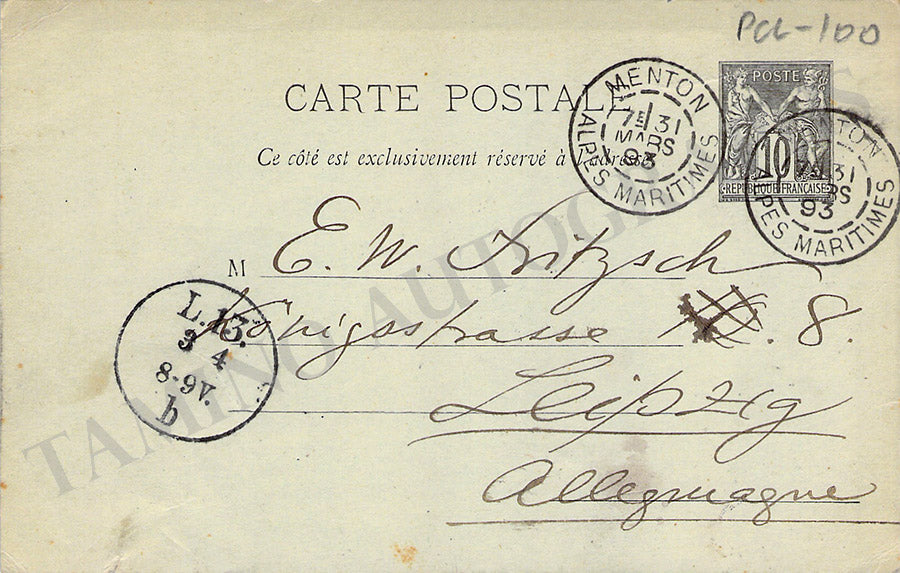 Pcl-100
CARTE POSTALE
Ce côté est exclusivement réservé à l'adresse
MENTON
7E 31
MARS
93
ALPES MARITIMES
POSTE
10
REPUBLIQUE FRANÇAISE
MENTON
7E 31
MARS
93
ALPES MARITIMES
M E. W. Fritzsch
Königsstrasse 8.
Leipzig
Allegmagne
L. 13.
3 4
8-9V.
b
TAMINO AUTOGRAPHS